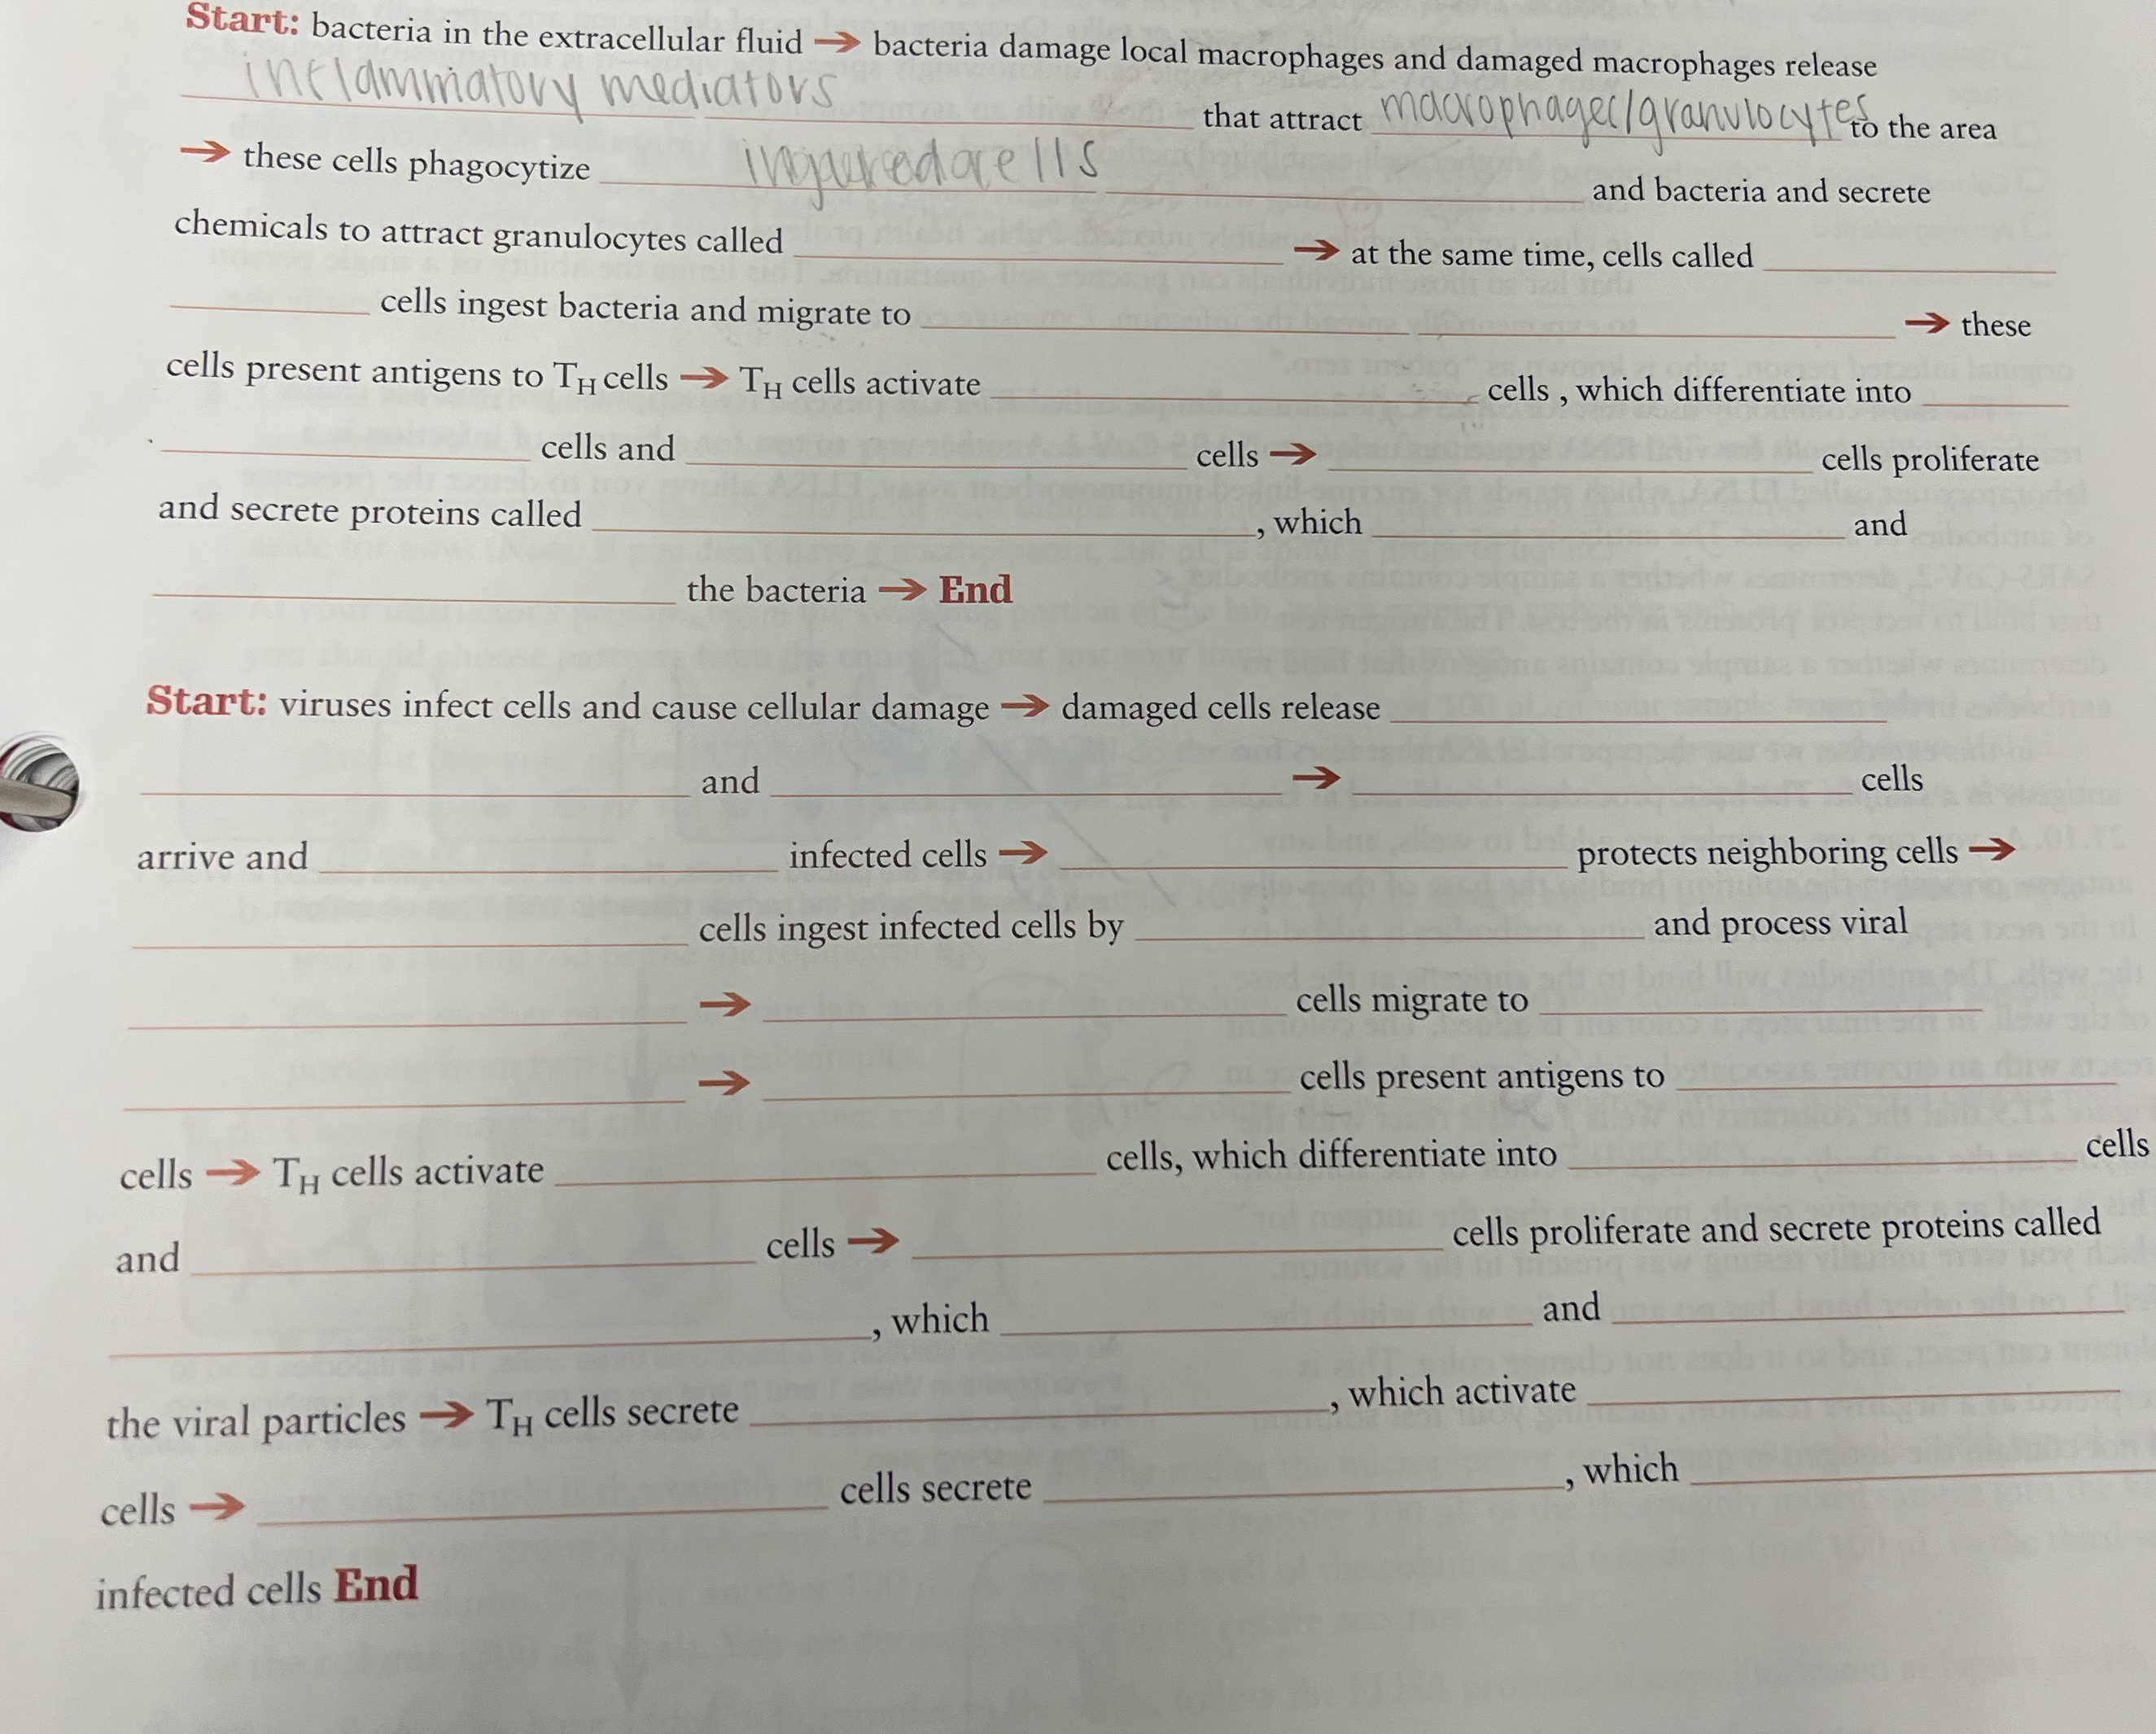 Start: bacteria in the extracellular fluid → bacteria damage local macrophages and damaged macrophages release
inflammatory mediators that attract macrophages/granulocytes to the area
→ these cells phagocytize cells and bacteria and secrete
chemicals to attract granulocytes called → at the same time, cells called
cells ingest bacteria and migrate to → these
cells present antigens to TH cells → TH cells activate cells , which differentiate into
cells and cells → cells proliferate
and secrete proteins called , which and
the bacteria → End
Start: viruses infect cells and cause cellular damage → damaged cells release
and → cells
arrive and infected cells → protects neighboring cells →
cells ingest infected cells by and process viral
→ cells migrate to
→ cells present antigens to
cells → TH cells activate cells, which differentiate into cells
and cells → cells proliferate and secrete proteins called
, which and
the viral particles → TH cells secrete , which activate
cells → cells secrete , which
infected cells End